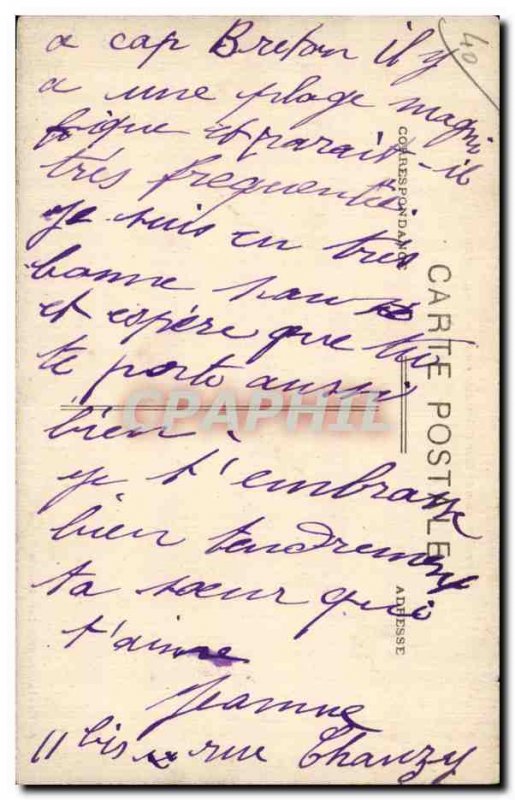 a cap Breton il y
a une plage magni
fique et parait-il
très frequentée
je suis en très
bonne san
et espère que tu
te porte aussi
bien -
je t'embrasse
bien tendrement
ta sœur qui
t'aime
Jeanne
11 bis rue Chanzy
40
CORRESPONDANCE
CARTE POSTALE
ADRESSE
CPAPHIL